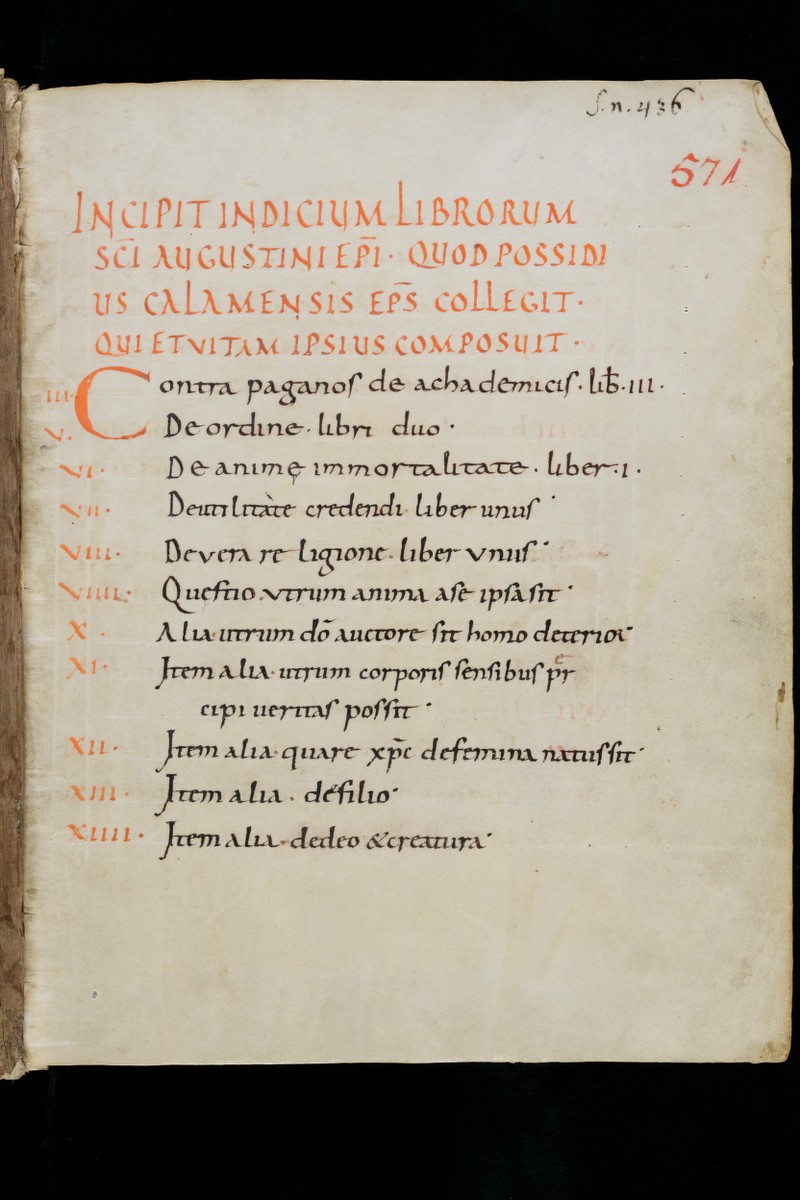 S. n. 436
571
INCIPIT INDICIUM LIBRORUM
SC̄I AUGUSTINI EP̄I · QUOD POSSIDI
US CALAMENSIS EP̄S COLLEGIT ·
QUI ET VITAM IPSIUS COMPOSUIT ·
III. Contra paganos de achademicis · lib̄ · III ·
V. De ordine · libri duo ·
VI · De animę immortalitate · liber · I ·
VII · De utilitate credendi liber unus ·
VIII · De vera religione · liber unus ·
VIIII · Questio · utrum anima a se ipsa sit ·
X · Alia · utrum dō auctore sit homo deterior ·
XI · Item alia · utrum corporis sensibus p̄r
cipi ueritas possit ·
XII · Item alia · quare xp̄c de femina natus sit ·
XIII · Item alia · de filio ·
XIIII · Item alia · de deo & creatura ·